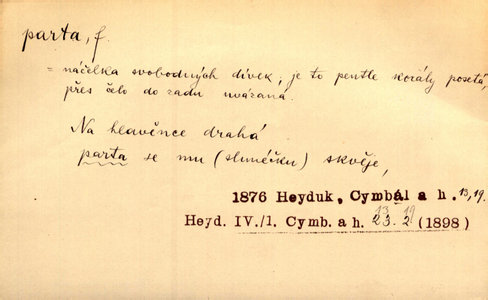 parta, f.
= náčelka svobodných dívek; je to pentle korály posetá,
přes čelo do zadu uvázaná.
Na hlavěnce drahá
parta se mu (slunéčku) skvěje,
1876 Heyduk, Cymbál a h. 13, 19.
Heyd. IV./1. Cymb. a h. 13 19 (1898)